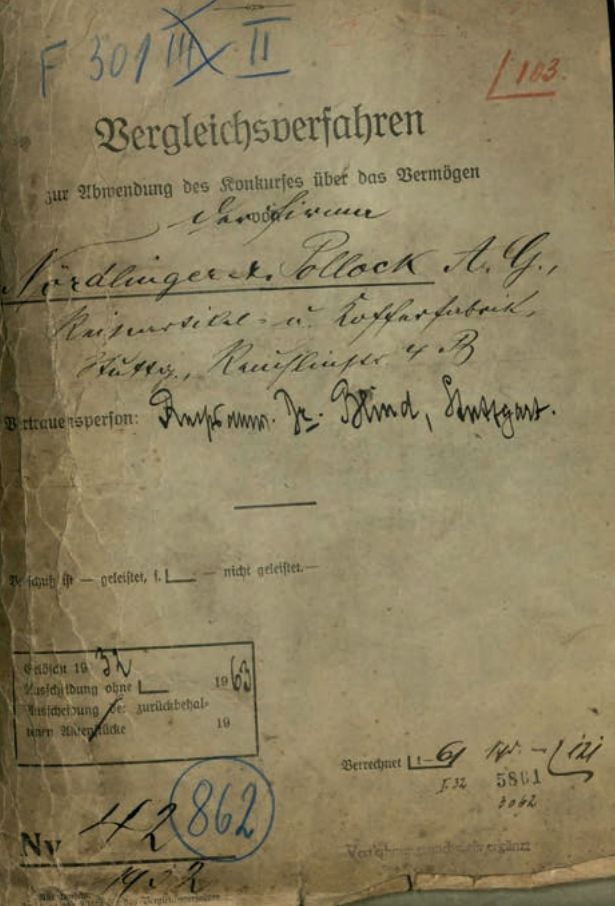 F 301 III II
/103.
Vergleichsverfahren
zur Abwendung des Konkurses über das Vermögen
der Firma
Nördlinger & Pollock A. G.,
Reiseartikel- u. Kofferfabrik,
Stuttg., Reuchlinstr. 4 B
Vertrauensperson: Rechtsanw. Dr. Blind, Stuttgart.
Vorschuß ist — geleistet, s. — nicht geleistet.—
19 32
Ausscheidung ohne 19 63
Ausscheidung der zurückbehal-
tenen Aktenstücke 19
Berechnet 61 121
I. 32 5801
3062
Nv 42 862
1932